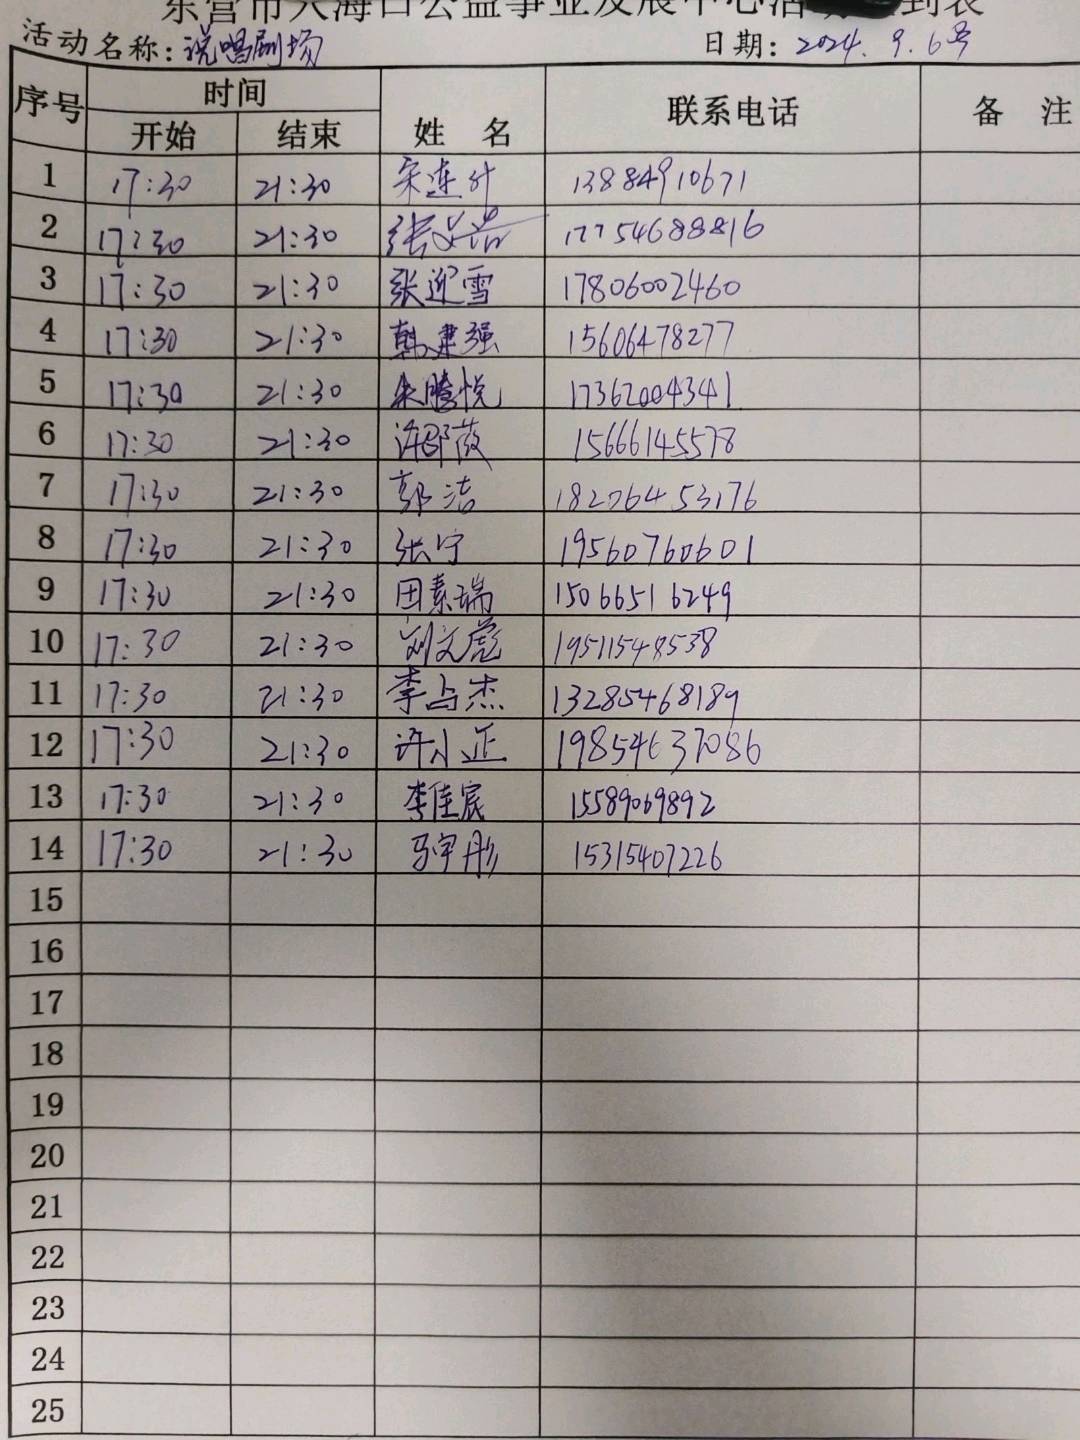 东营市入海口公益事业发展中心活动 到表
活动名称：说唱剧场 日期：2024.9.6号
序号 时间 姓 名 联系电话 备 注
开始 结束
1 17:30 21:30 宋连升 13884910671
2 17:30 21:30 张 浩 17754688816
3 17:30 21:30 张迎雪 17806002460
4 17:30 21:30 韩建强 15606478277
5 17:30 21:30 朱腾悦 17362004341
6 17:30 21:30 许邵薇 15666145578
7 17:30 21:30 郭洁 18206453176
8 17:30 21:30 张宁 19560760601
9 17:30 21:30 田素瑞 15066516249
10 17:30 21:30 刘文彪 19511548538
11 17:30 21:30 李占杰 13285468189
12 17:30 21:30 许小正 19854637086
13 17:30 21:30 李佳宸 15589069892
14 17:30 21:30 马宇彤 15315407226
15
16
17
18
19
20
21
22
23
24
25